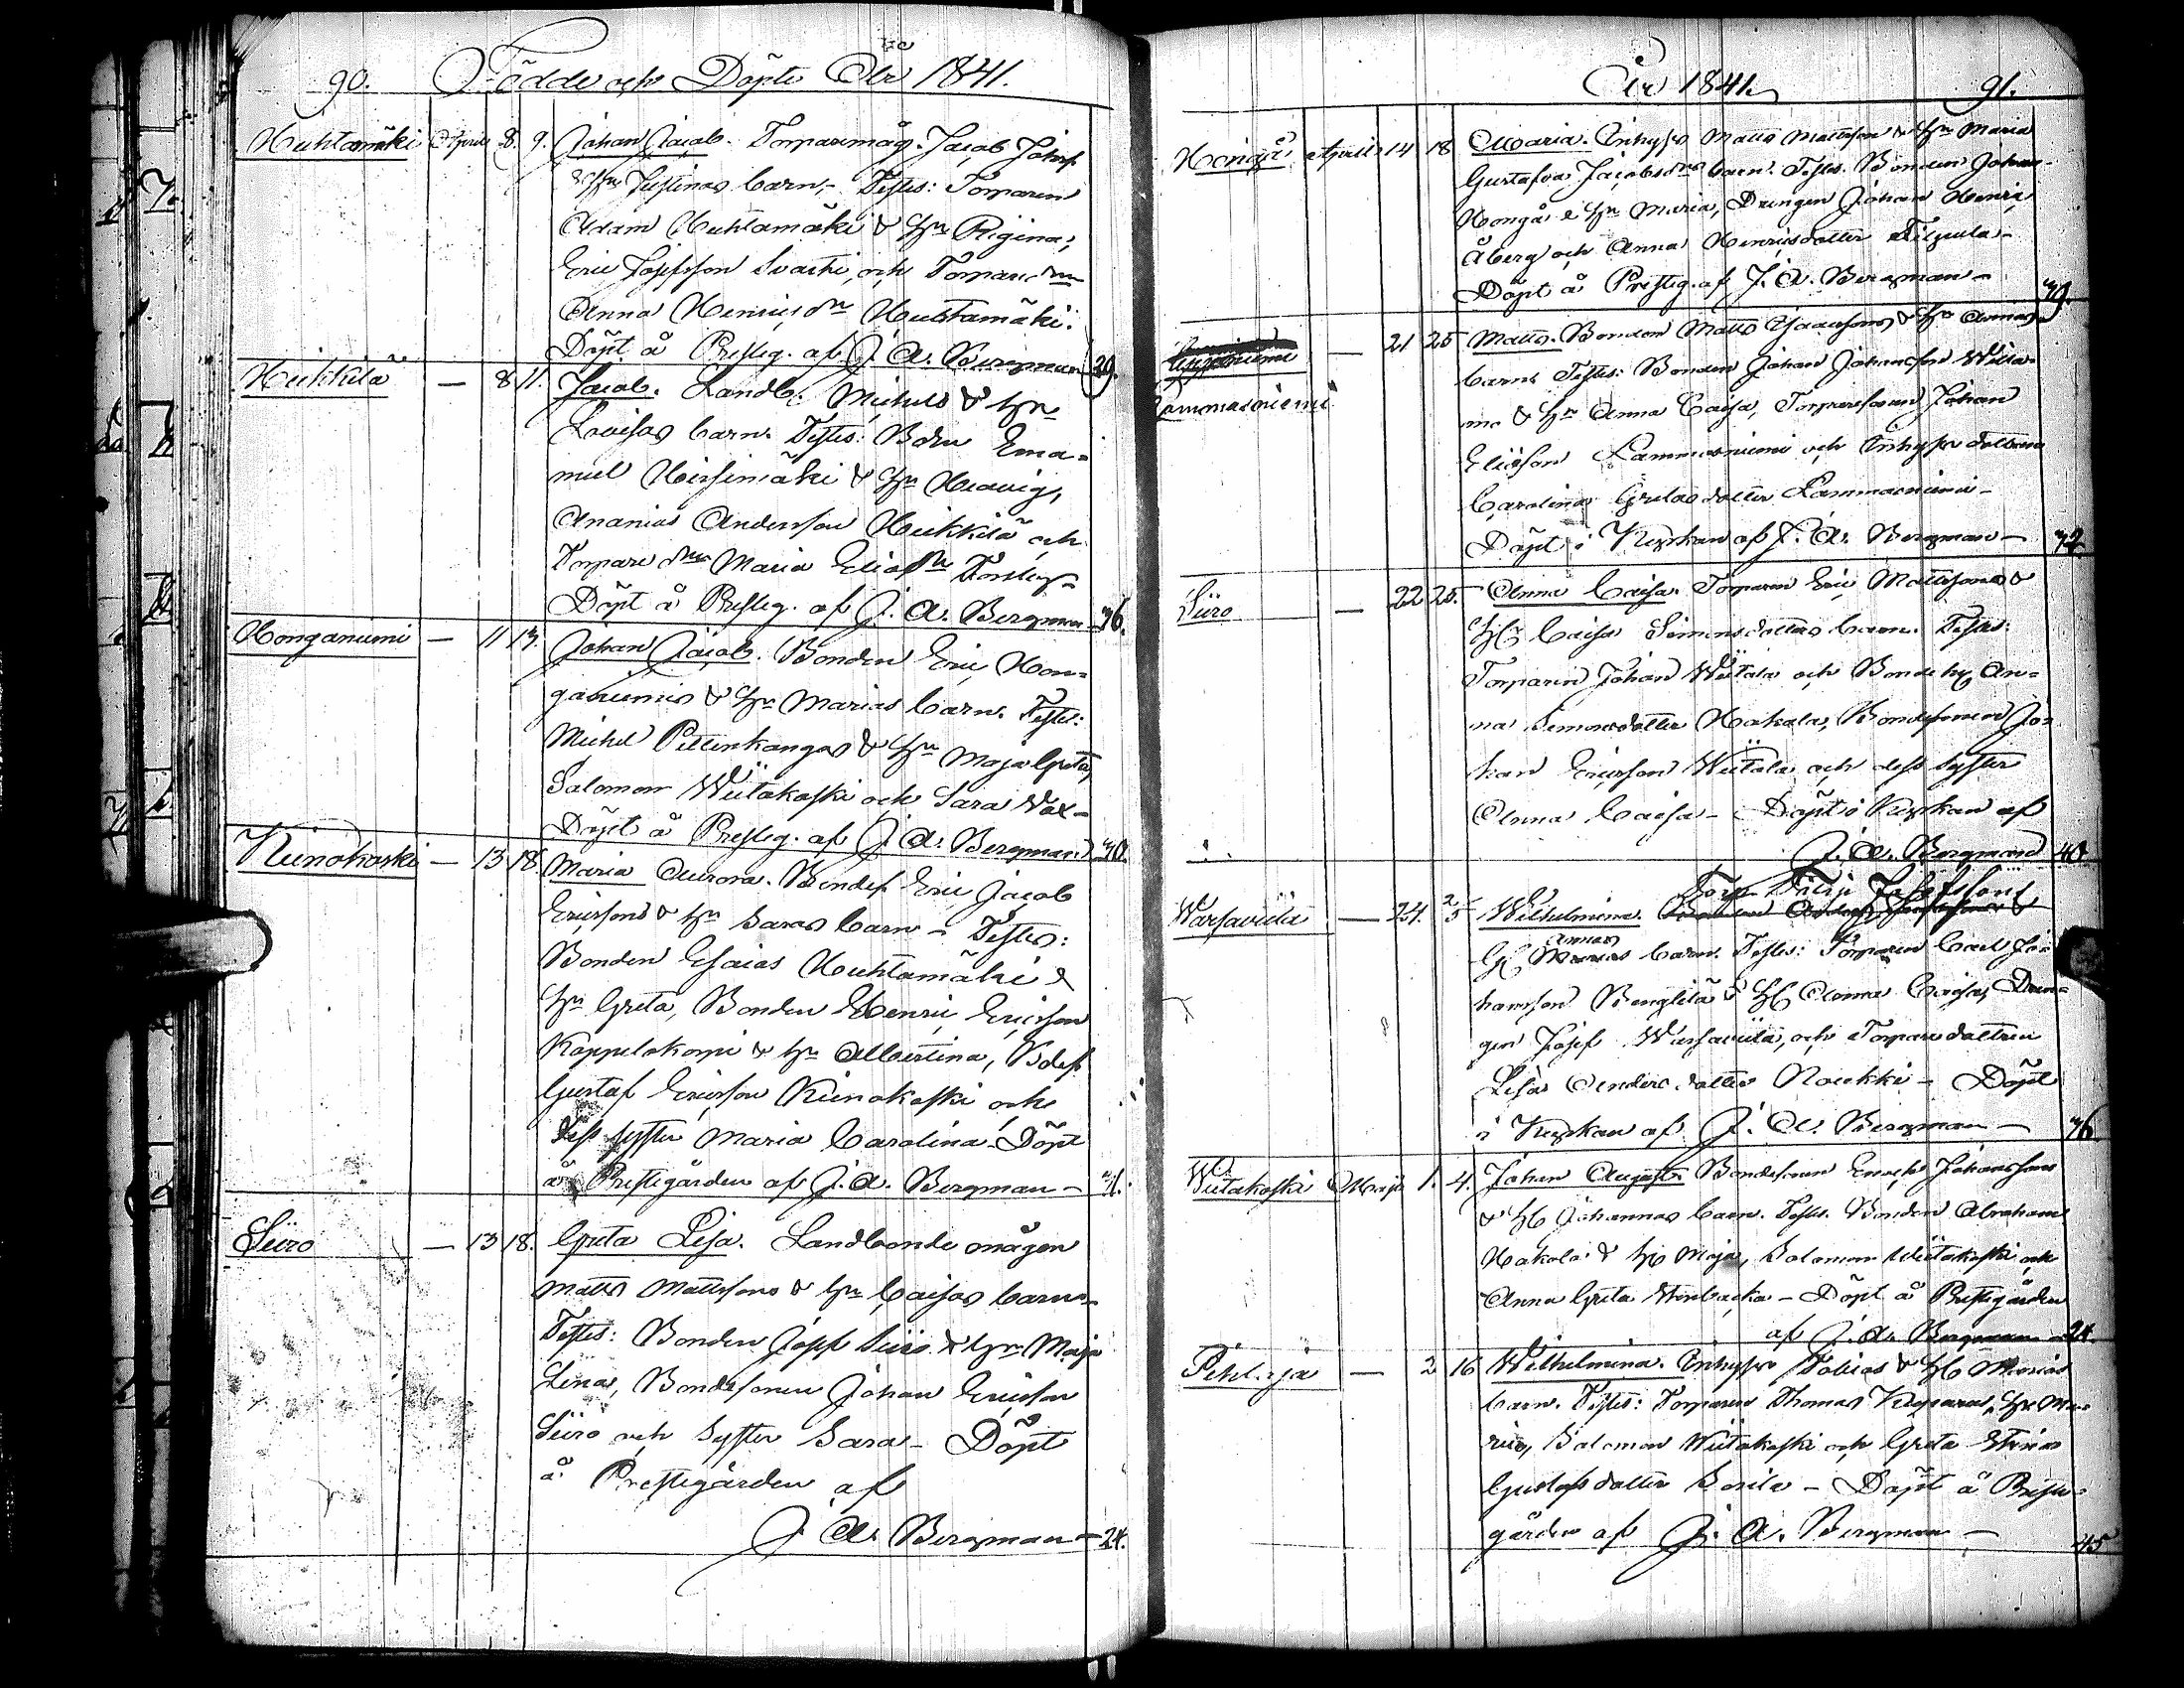 90. Födde och Döpte År 1841.
Huhtamäki April 8. 9. Johan Jacob. Torparemåg. Jacob Johnss
& Hu Justinas barn, Testes: Torparen
Adam Huhtamäki & Hu Regina,
Eric Josefsson Svarti och Torparedtr
Anna Henricsdr Huhtamäki.
Döpt å Presteg. af J. A. Bergman 29.
Heikkilä — 8 11. Jacob. Landb. Michels & hu
Lovisas barn. Testes: Bden Ema-
nuel Hirsimäki & Hu Hedvig,
Ananias Andersson Heikkilä och
Torpare dtr Maria Elias dr
Döpt å Presteg. af J. A. Bergman 36.
Honganiemi — 11 13. Johan Jacob. Bonden Eric Hon-
ganiemis & Hu Marias barn. Testes:
Michel Pettenkangas & Hu Maja Greta,
Salomon Wiitakoski och Sara
Döpt å Presteg. af J. A. Bergman 30.
Kiinokoski — 13 18. Maria Aurora. Bondes. Eric Jacob
Ericssons & hu Saras barn — Testes:
Bonden Esaias Huhtamäki &
Hu Greta, Bonden Henric Ericsson
Kåppelokorpi & hu Albertina, Bdes
Gustaf Ericsson Kiinokoski och
dess syster Maria Carolina. Döpt
å Prestegården af J. A. Bergman — 31.
Siiro — 13 18. Greta Lisa. Landbonde mågen
Matts Mattssons & hu Caisas barn
Testes: Bonden Josef Siiro & hu Maja
Lena, Bondesonen Johan Ericsson
Siiro och syster Sara — Döpt
å Prestegården af
J. A. Bergman — 24.
År 1841. 91.
Hongå April 14 18 Maria. Inhyses Matts Mattsson & Hu Maria
Gustafva Jacobsdrs barn. Testes. Bonden Johan
Hongå & hu Maria, Drengen Johan Henric
Åberg och Anna Henricsdotter Filpula —
Döpt å Presteg. af J. A. Bergman — 39.
Lammasniemi — 21 25 Matts. Bonden Matts Isaacssons & Hu Annas
barn. Testes: Bonden Johan Johansson
& Hu Anna Caisa, Torparesonen Johan
Eliasson Lammasniemi och Inhyses dottren
Carolina Gretas dotter Lammasniemi —
Döpt i Kyrkan af J. A. Bergman — 32
Siiro — 22 25. Anna Caisa. Torparen Eric Mattssons &
Hu Caisa Simonsdotters barn. Testes:
Torparen Johan Wiitala och Bonde hu An-
na Simonsdotter Hakala, Bondesonen Jo-
han Ericsson Wiitala och dess syster
Anna Caisa — Döpt i Kyrkan af
J. A. Bergman 40
Warsaviita — 24. 25 Wilhelmina. Torp. Filip Josefssons
Hu Annas barn. Testes: Torparen Carl Jo-
hansson Renglitä & Hu Anna Caisa, Dren-
gen Josef Warsaviita, och Torpare dottren
Lisa Anders dotter Noukki — Döpt
i Kyrkan af J. A. Bergman — 36
Wiitakoski Maji 1. 4. Johan August. Bondesonen Enoch Johanssons
& Hu Johannas barn. Testes. Bonden Abraham
Hakola & Hu Maja, Salomon Wiitakoski och
Anna Greta Stenbacka — Döpt å Prestegården
af J. A. Bergman 24.
Pihlaja — 2 16 Wilhelmina. Inhyses Tobias & Hu Marias
barn. Testes: Torparen Thomas Hu Ma-
ria, Salomon Wiitakoski och Greta Stina
Gustafs dotter — Döpt å Preste-
gården af J. A. Bergman — 45